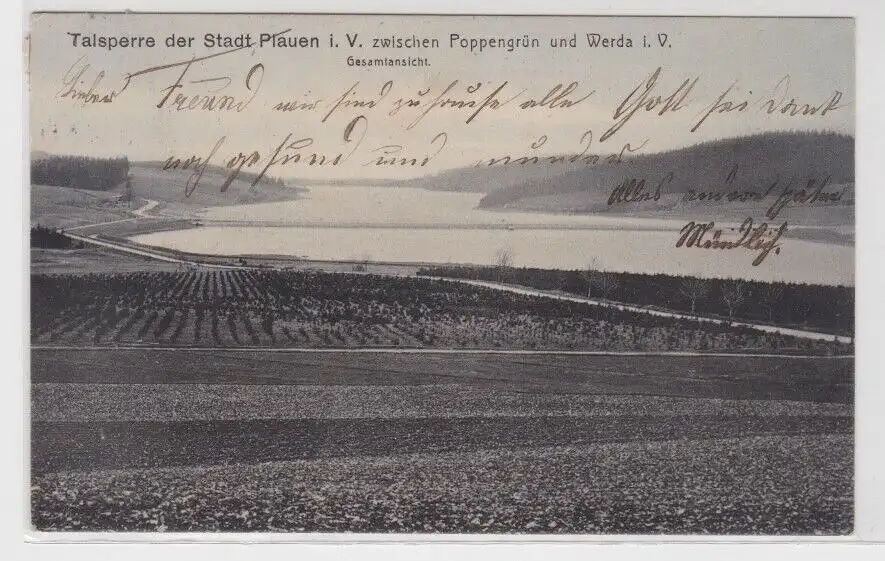 Talsperre der Stadt Plauen i. V. zwischen Poppengrün und Werda i. V.
Gesamtansicht.
Lieber Freund wir sind zu hause alle Gott sei Dank
noch gesund und munder
Alles andere später
Mündlich.